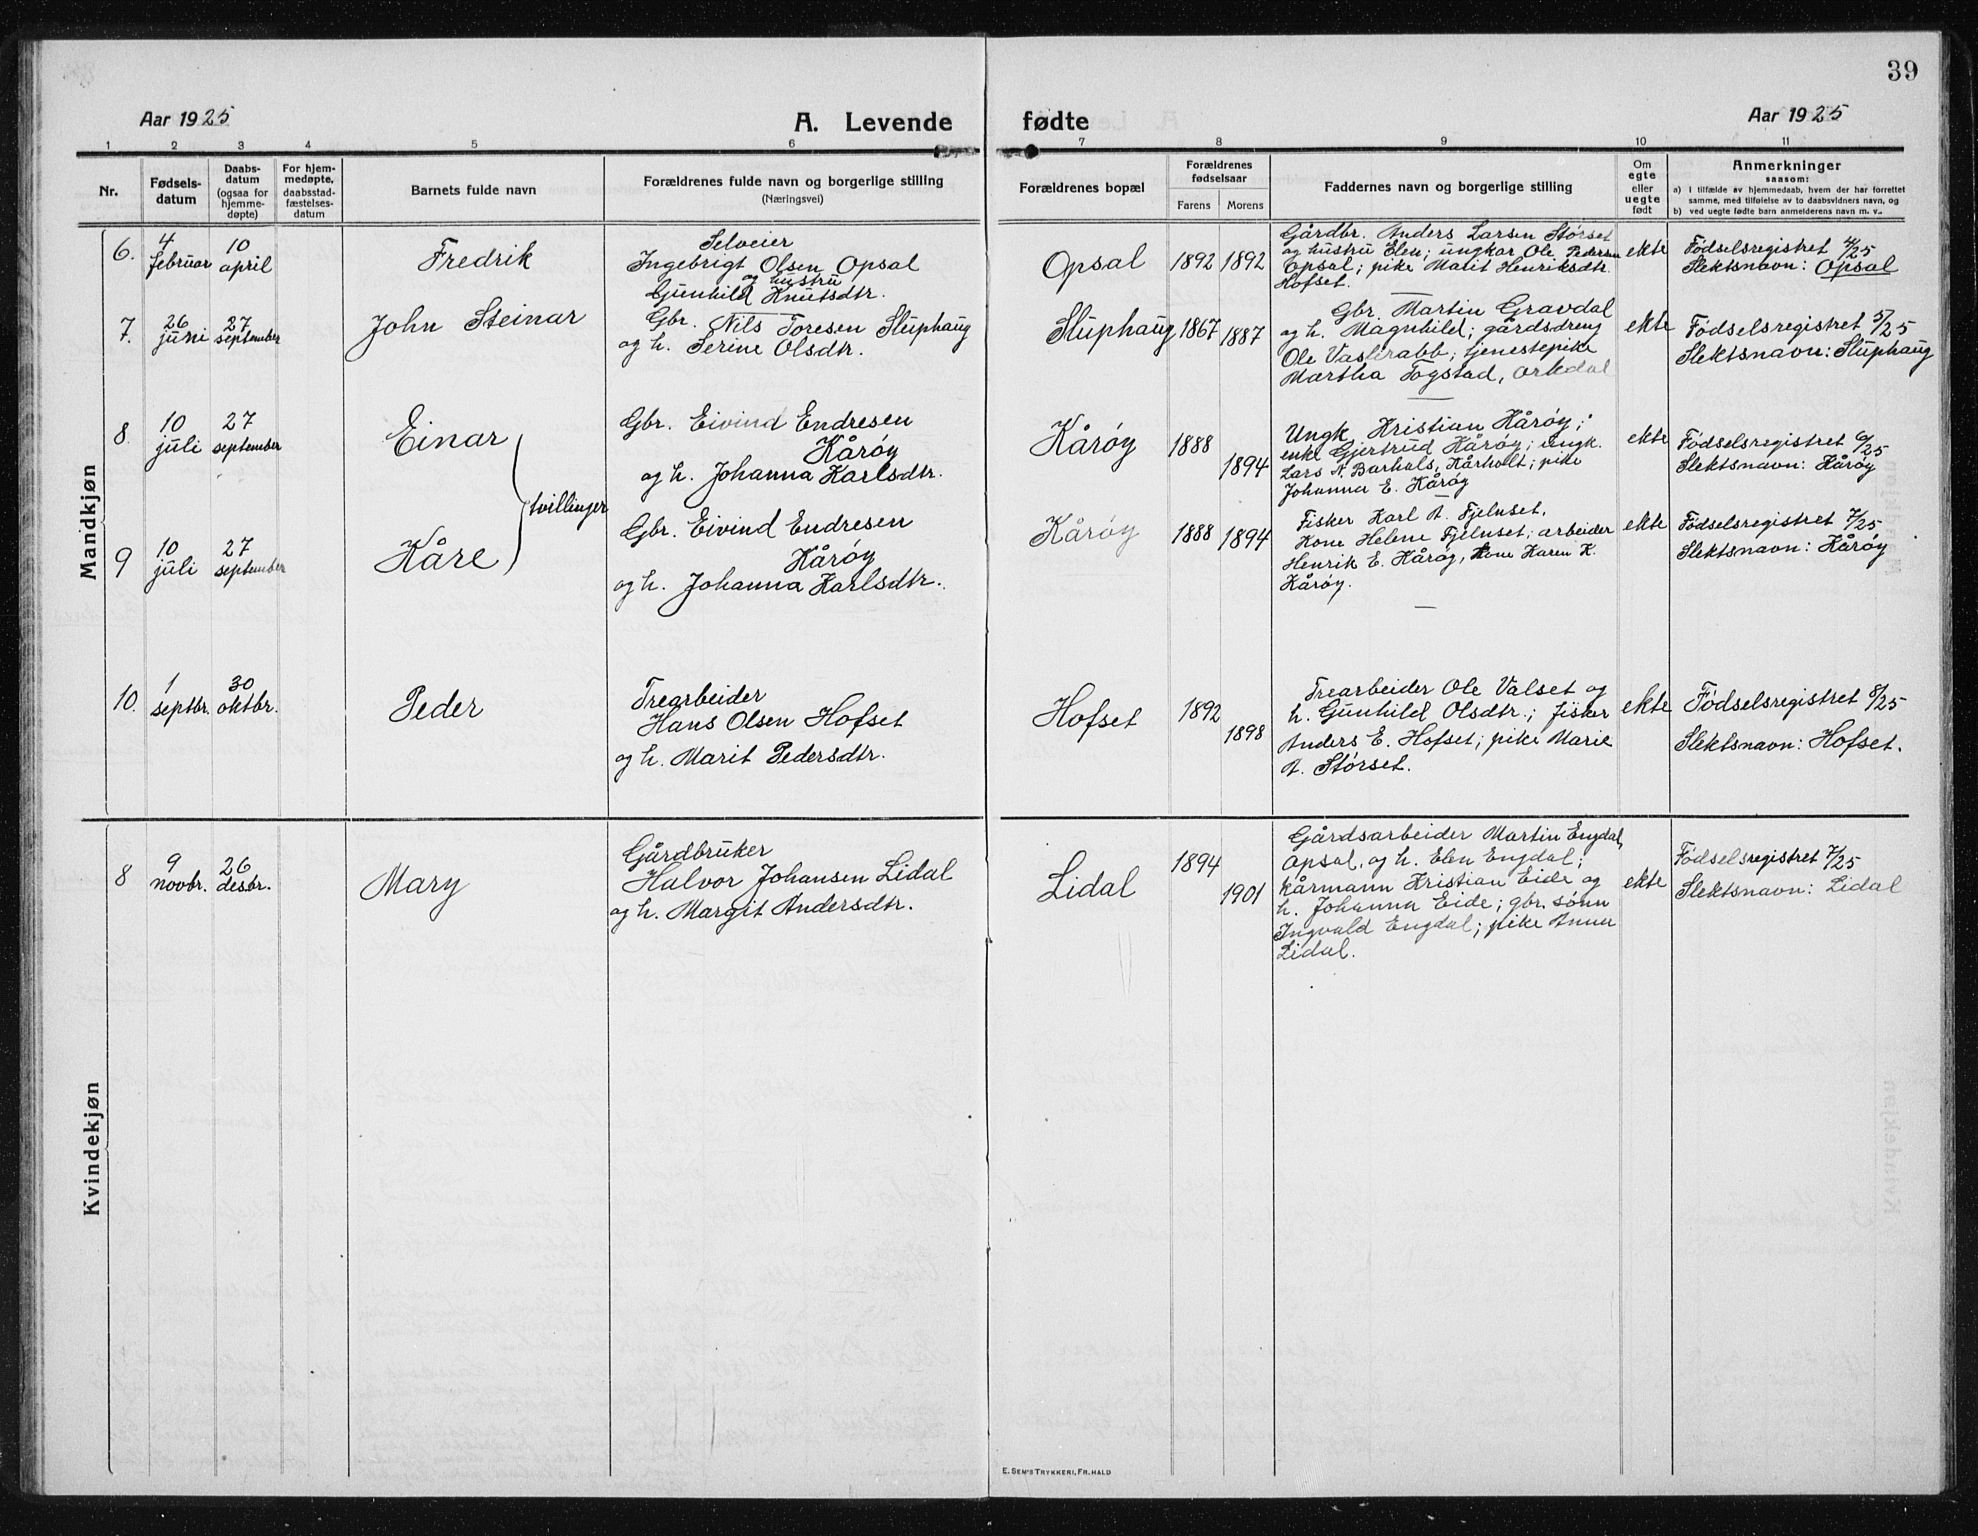 39
Aar 1925
A. Levende fødte
Aar 1925
1 2 3 4 5 6 7 8 9 10 11
Nr.
Fødsels-
datum
Daabs-
datum
(ogsaa for
hjemme-
døpte)
For hjem-
medøpte,
daabsstad-
fæstelses-
datum
Barnets fulde navn
Forældrenes fulde navn og borgerlige stilling
(Næringsvei)
Forældrenes bopæl
Forældrenes
fødselsaar
Farens Morens
Faddernes navn og borgerlige stilling
Om
egte
eller
uegte
født
Anmerkninger
saasom:
a) I tilfælde av hjemmedaab, hvem der har forrettet
samme, med tilføielse av to daabsvidners navn, og
b) ved uegte fødte barn anmelderens navn m. v..
Mandkjøn
6.
4
februar
10
april
Fredrik
Selveier
Ingebrigt Olsen Opsal
og hustru
Gunhild Knutsdtr.
Opsal
1892 1892
Gårdbr. Anders Larsen Størset
og hustru Elen; ungkar Ole Pedersen
Opsal; pike Marit Henriksdtr.
Hofset.
ekte
Fødselsregistret 4/25
Slektsnavn: Opsal
7.
26
juni
27
september
John Steinar
Gbr. Nils Toresen Stuphaug
og h. Serine Olsdtr.
Stuphaug
1867 1887
Gbr. Martin Gravdal
og h. Magnhild; gårdsdreng
Ole Vaslirabb; tjenestepike
Martha Togstad, Orkdal
ekte
Fødselsregistret 5/25
Slektsnavn: Stuphaug
8.
10
juli
27
september
Einar
Gbr. Eivind Endresen
Kårøy
og h. Johanna Karlsdtr.
Kårøy
1888
1894
Ungk Kristian Kårøy;
enke Gjertrud Kårøy; ungk.
Lars N. Barhals, Kårholt; pike
Johanna E. Kårøy
ekte
Fødselsregistret 6/25
Slektsnavn: Kårøy
tvillinger
9
10
juli
27
september
Kåre
Gbr. Eivind Endresen
Kårøy
og h. Johanna Karlsdtr.
Kårøy
1888 1894
Fisker Karl A. Fjelnset,
Kone Helene Fjelnset; arbeider
Henrik E. Kårøy, Kone Karen K.
Kårøy.
ekte
Fødselsregistret 7/25
Slektsnavn: Kårøy
10.
1
septbr.
30
oktbr.
Peder
Trearbeider
Hans Olsen Hofset
og h. Marit Pedersdtr.
Hofset
1892
1898
Trearbeider Ole Valset og
h. Gunhild Olsdtr.; fisker
Anders E. Hofset; pike Marie
A. Størset.
ekte
Fødselsregistret 8/25
Slektsnavn: Hofset.
Kvindekjøn
8
9
novbr.
26
desbr.
Mary
Gårdbruker
Halvor Johansen Lidal
og h. Margit Andersdtr.
Lidal
1894
1901
Gårdsarbeider Martin Engdal,
Opsal, og h. Elen Engdal;
kårmann Kristian Eide og
h. Johanna Eide; gbr. sønn
Ingvald Engdal; pike Anna
Lidal.
ekte
Fødselsregistret 7/25
Slektsnavn: Lidal
E. Sem's Trykkeri, Fr.hald